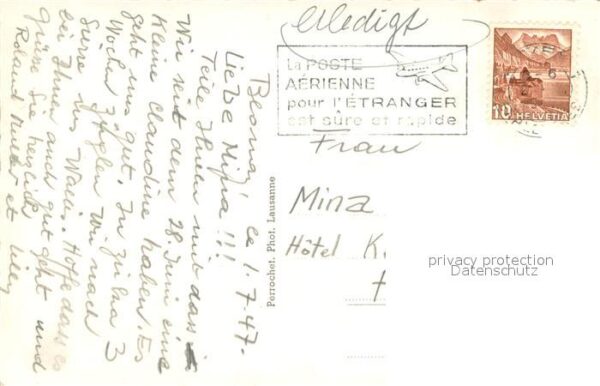 Blonay, ce 1.7.47.
Liebe Mina !!!
Teile Ihnen mit dass
Wir seit dem 28 Juni eine
Kleine Claudine haben. Es
geht uns gut. In zirka 3
Wochen Wir nach
Sierre das Wallis. Hoffe dass es
bei Ihnen auch gut geht und
Grüsse Sie herzlich
Roland et Lily
Perrochet. Phot. Lausanne
Erledigt
La POSTE
AÉRIENNE
pour l'ÉTRANGER
est sûre et rapide
10 HELVETIA
Frau
Mina
Hôtel K.
privacy protection
Datenschutz